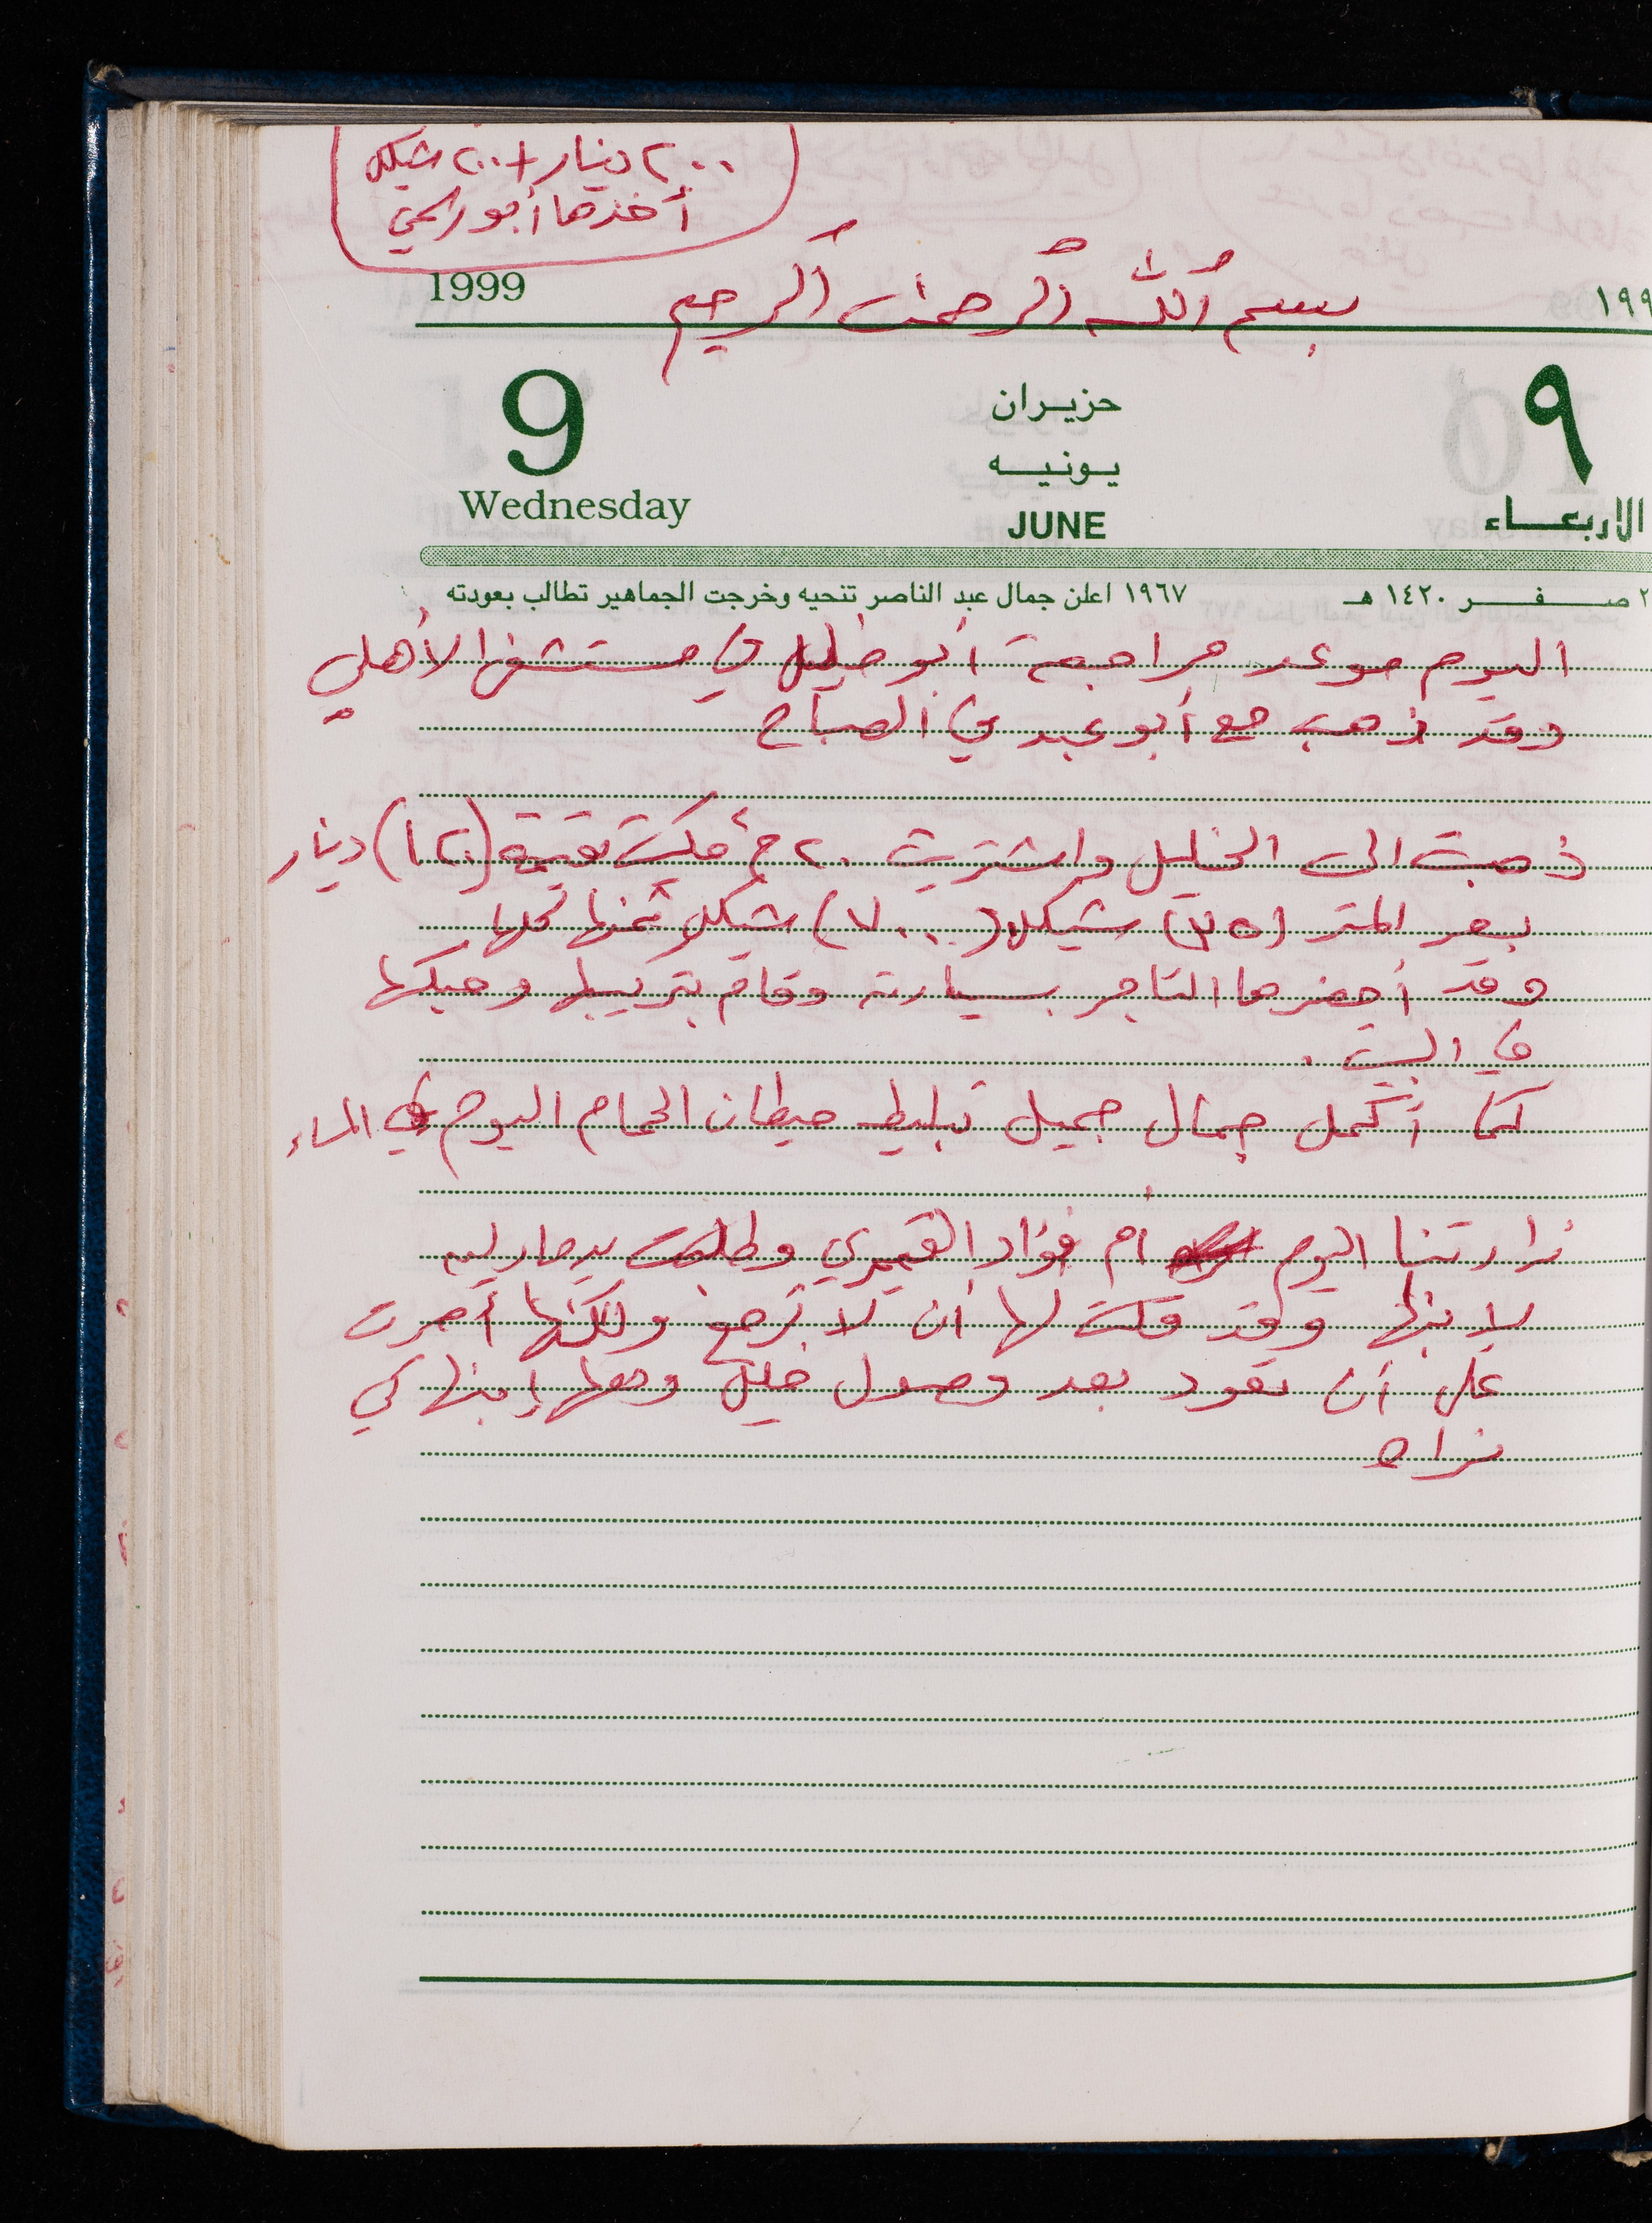 ٢٠٠ دينار + ٢٠٠ شيكل
أخذها أبو راجي
بسم الله الرحمن الرحيم
1999
١٩٩
9
حزيران
٩
يونيه
Wednesday
JUNE
الاربعاء
٢ صفر ١٤٢٠ هـ
١٩٦٧ اعلن جمال عبد الناصر تنحيه وخرجت الجماهير تطالب بعودته
اليوم موعد مراجعة أبو خليل في مستشفى الأهلي
وقد ذهب مع أبو عبد في الصباح
ذهبت الى الخليل واشتريت ٢٠ م موكيت بقيمة (١٢٠) دينار
بسعر المتر (٣٥) شيكل (٧٠٠) شيكل ثمنها كلها
وقد أحضرها التاجر بسيارته وقام بتربيط وحبكها
في البيت .
كما أكمل جمال جميل تبليط حيطان الحمام اليوم في المساء
زارتنا اليوم أم فؤاد القيمري وطلبت
لابنها وقد قلت لها أن لا ترجع ولكنها أصرت
على أن تعود بعد وصول خليل ومعها إبنها كي
نراه